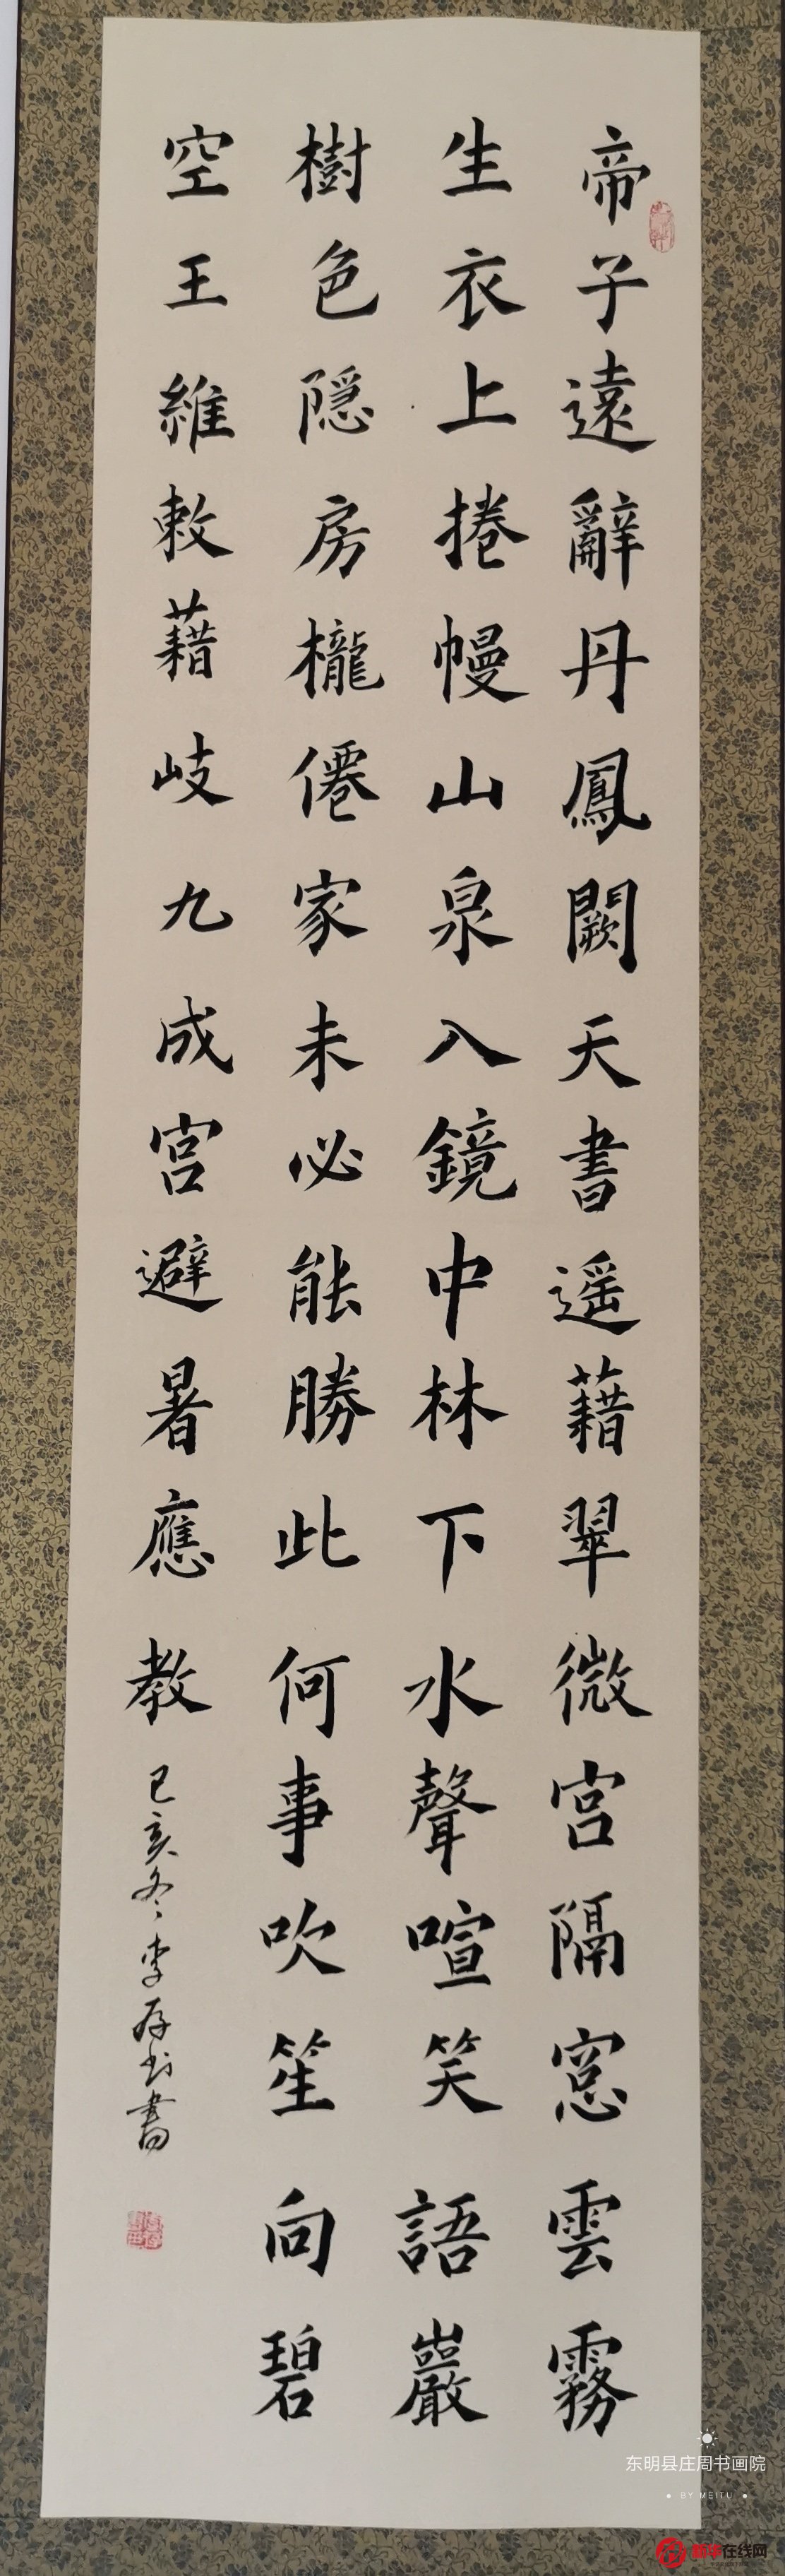 帝子遠辭丹鳳闕天書遥藉翠微宫隔窓雲霧
生衣上捲幔山泉入鏡中林下水聲喧笑語巖
樹色隱房櫳僊家未必能勝此何事吹笙向碧
空王維敕藉岐九成宫避暑應教
己亥冬李存書
东明县庄周书画院
BY MEITU
新华在线网